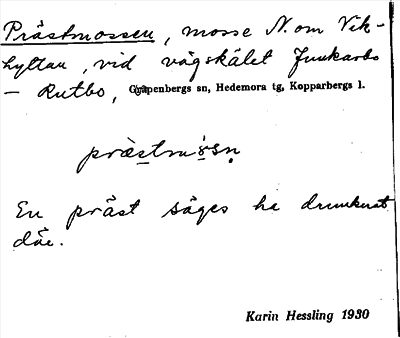 Prästmossen, mosse N. om Vik-
hyttan, vid vägskälet Junkarbo
— Rutbo, Garpenbergs sn, Hedemora tg, Kopparbergs l.
præstmɷ̀sn̥
En präst säges ha drunknat
däe.
Karin Hessling 1930